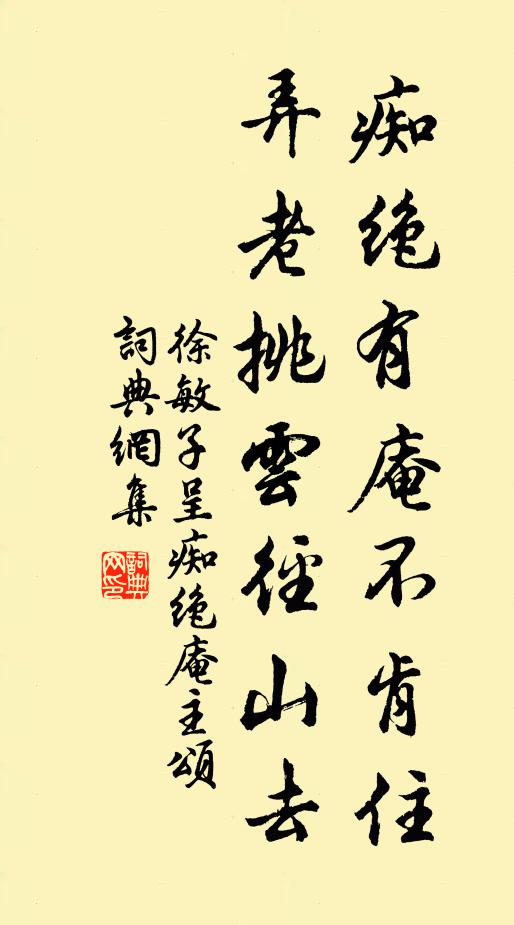 痴绝有庵不肯住
弄老挑雲径山去
徐敏子呈痴绝庵主頌
詞典網集
詞典网印